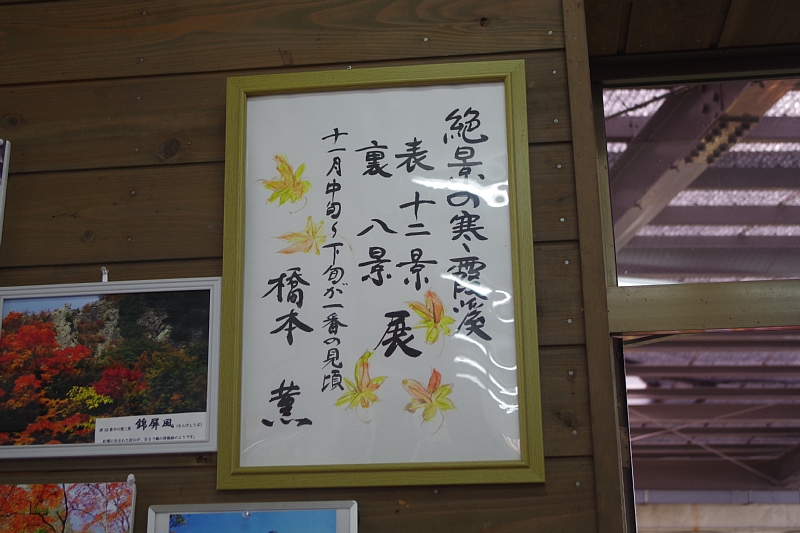 絶景の寒霞渓
表 十二景
裏 八景
展
十一月中旬〜下旬が一番の見頃
橋本 薫
錦屏風